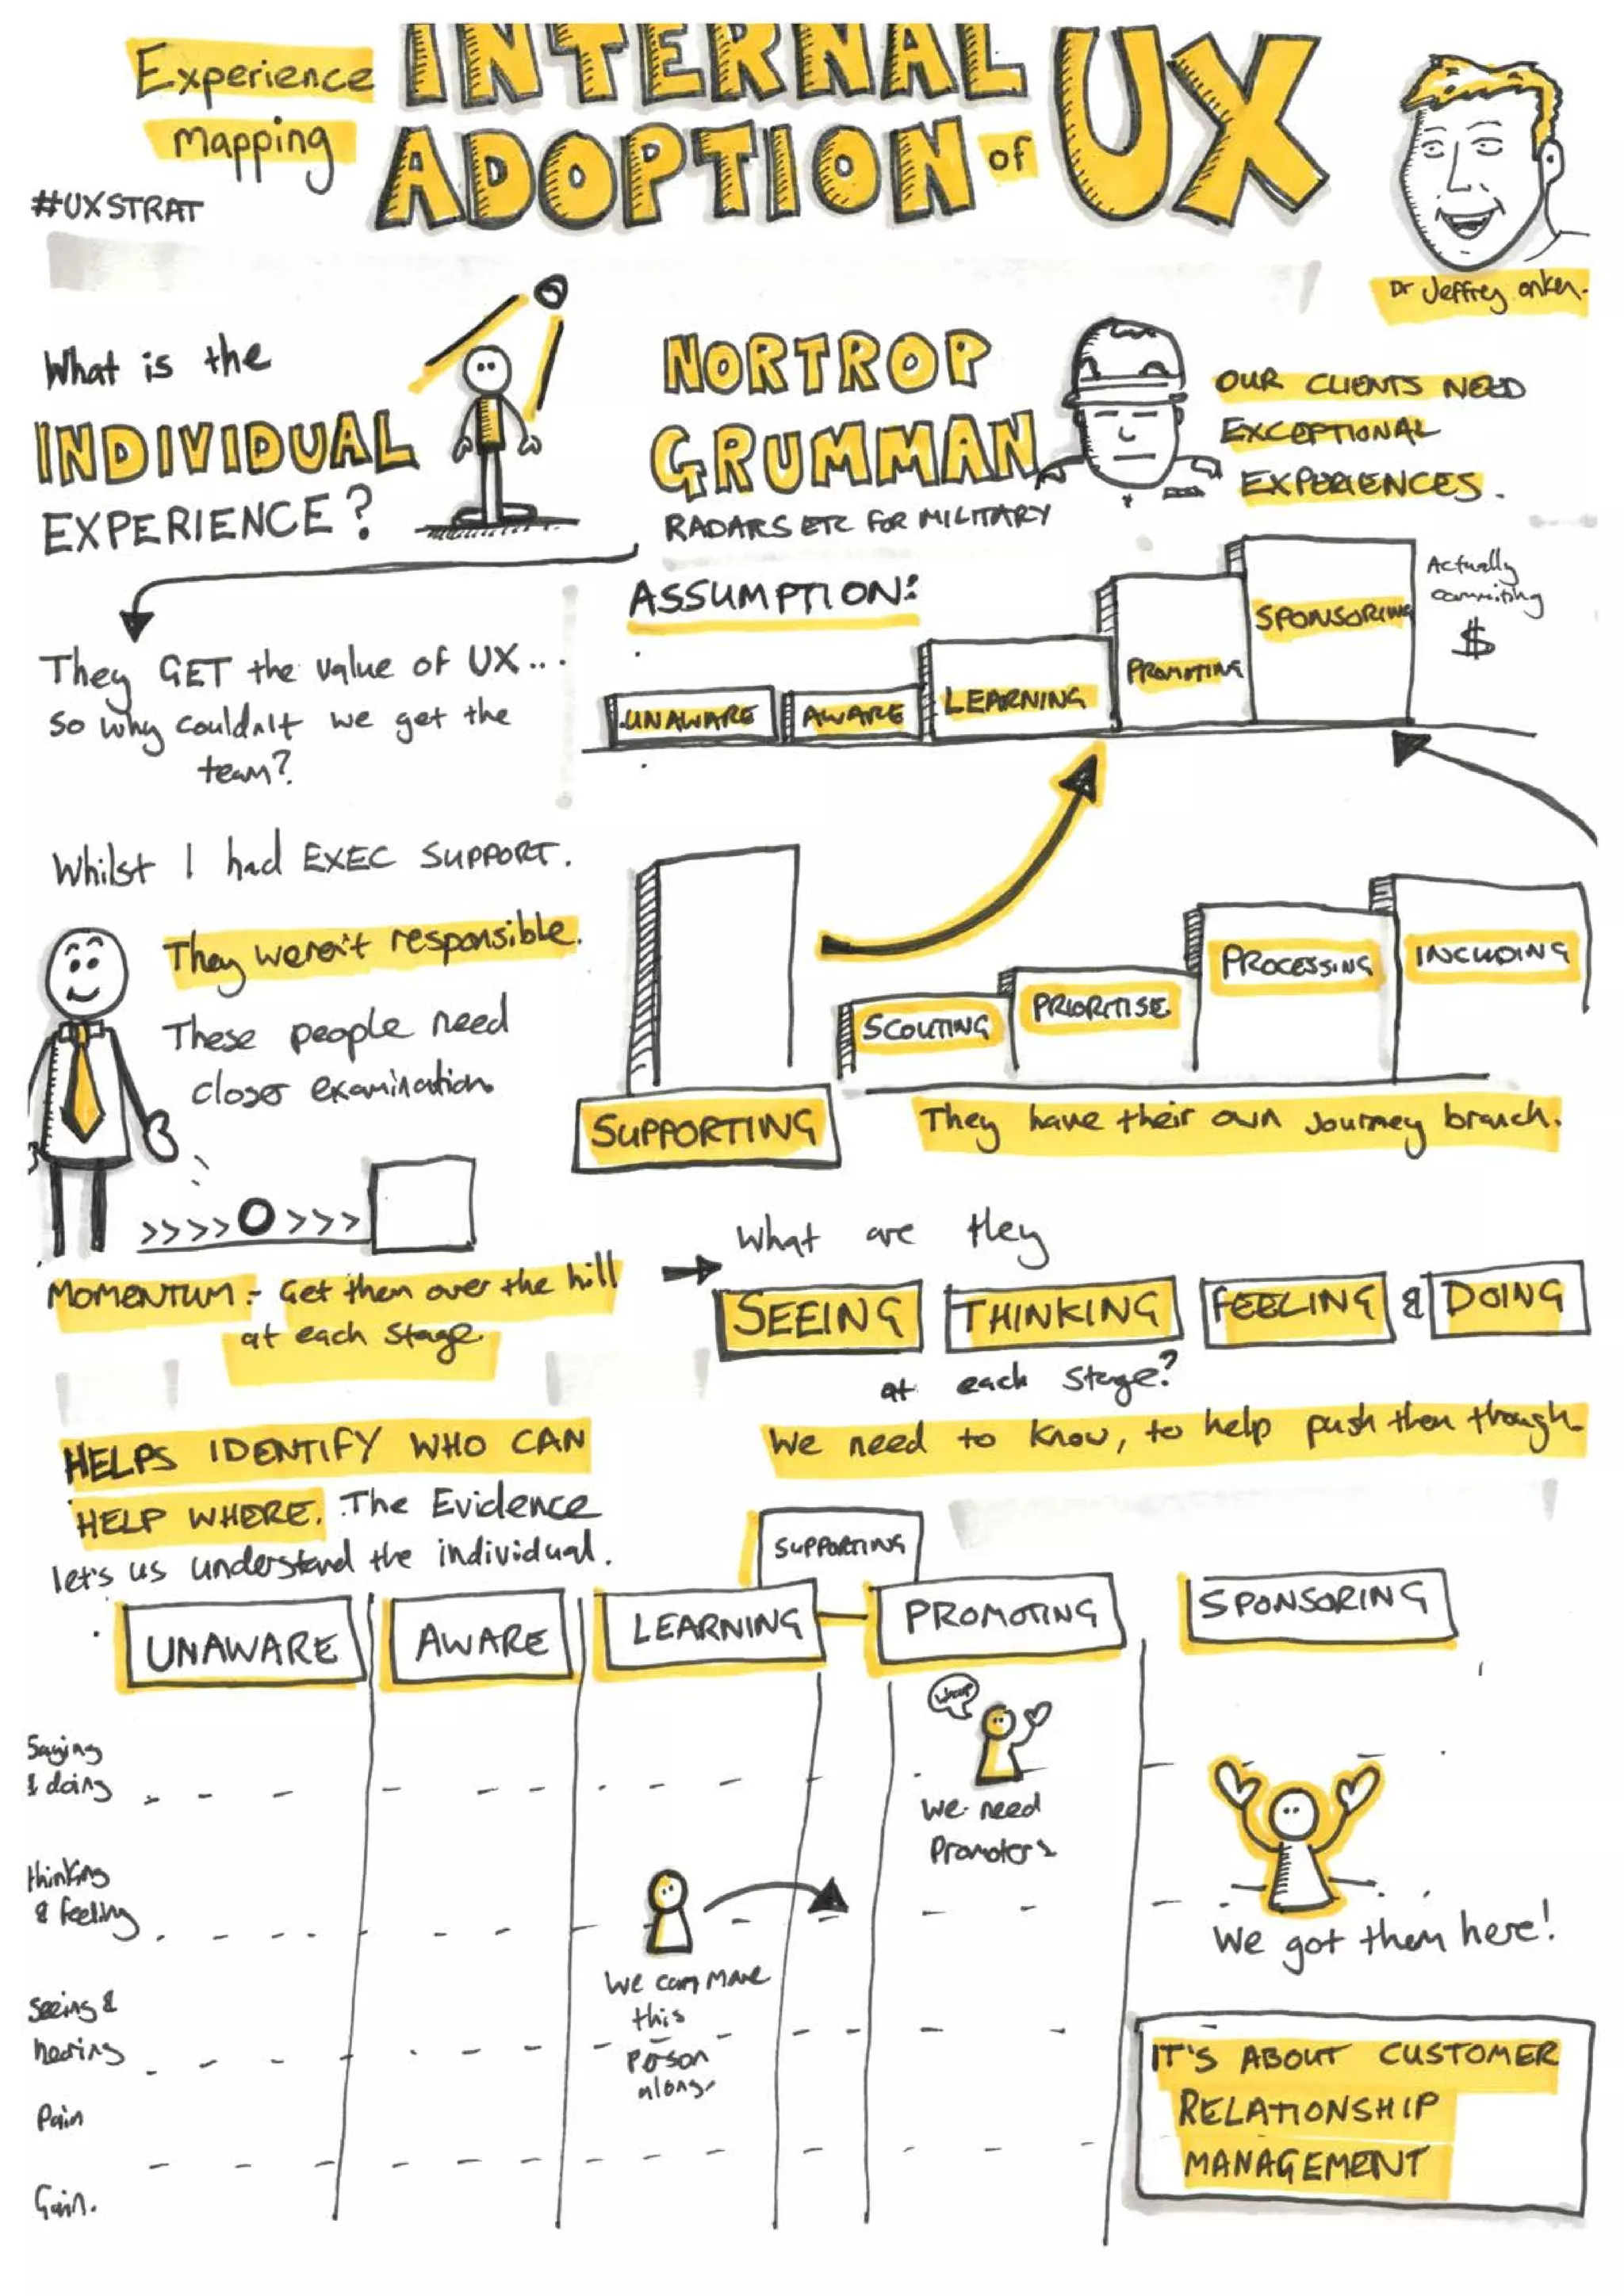 Experience
Mapping
INTERNAL
ADOPTION of UX
#UXSTRAT
Dr Jeffrey onken.
What is the
INDIVIDUAL
EXPERIENCE?
NORTROP
GRUMMAN
RADARS ETC FOR MILITARY
OUR CLIENTS NEED
EXCEPTIONAL
EXPERIENCES.
They GET the value of UX...
so why couldn't we get the
team?
ASSUMPTION:
UNAWARE
AWARE
LEARNING
PROMOTING
SPONSORING
Actually
commiting
$
Whilst I had EXEC SUPPORT.
They weren't responsible.
These people need
closer examination
SUPPORTING
SCOUTING
PRIORITISE
PROCESSING
INCLUDING
They have their own Journey branch.
>>>>O>>>
MOMENTUM:- Get them over the hill
at each stage
What are they
SEEING THINKING FEELING & DOING
at each stage?
We need to know, to help push them though.
HELPS IDENTIFY WHO CAN
HELP WHERE. The Evidence
let's us understand the individual.
SUPPORTING
UNAWARE
AWARE
LEARNING
PROMOTING
SPONSORING
Saying
& doing
We need
Promoters
thinking
& feeling
We can move
this
person
along.
We got them here!
Seeing &
hearing
Pain
Gain.
IT'S ABOUT CUSTOMER
RELATIONSHIP
MANAGEMENT